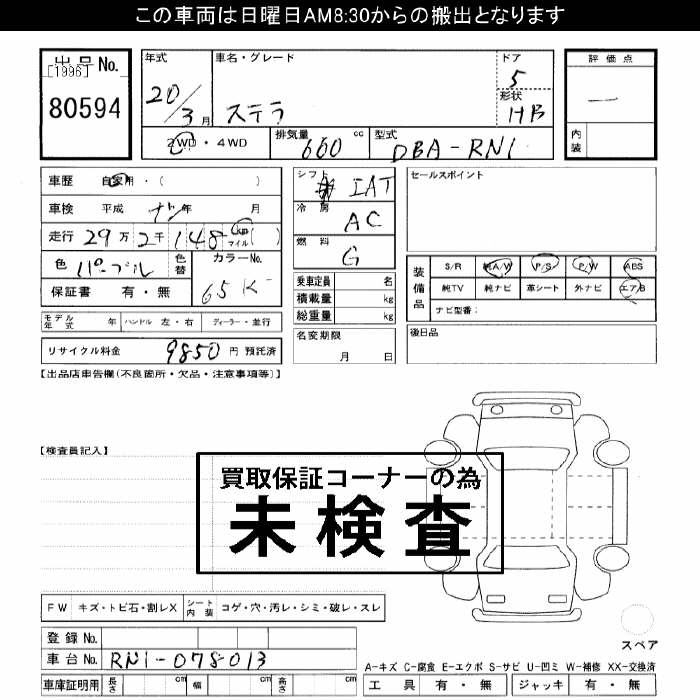 この車両は日曜日AM8:30からの搬出となります
出品No.
[1996]
80594
年式
20/3月
車名・グレード
ステラ
ドア
5
形状
HB
評価点
—
内装
2WD・4WD
排気量
660 cc
型式
DBA-RN1
車歴 自家用・( )
車検 平成 年 月
走行 29万2千148 km マイル ( )
色 パープル
色替
カラーNo.
65K
保証書 有・無
シフト
IAT
冷房
AC
燃料
G
乗車定員 名
積載量 kg
総重量 kg
セールスポイント
装備品
S/R 純A/W P/S P/W ABS
純TV 純ナビ 革シート 外ナビ エアB
ナビ型番:
モデル年式 年
ハンドル 左・右
ディーラー・並行
名変期限
月 日
後日品
リサイクル料金 9850 円 預託済
【出品店車告欄(不良箇所・欠品・注意事項等)】
【検査員記入】
買取保証コーナーの為
未検査
FW キズ・トビ石・割レX
シート内装 コゲ・穴・汚レ・シミ・破レ・スレ
登録No.
車台No. RN1-078013
スペア
車庫証明用 長さ cm 幅 cm 高さ cm
A-キズ C-腐食 E-エクボ S-サビ U-凹ミ W-補修 XX-交換済
工具 有・無 ジャッキ 有・無